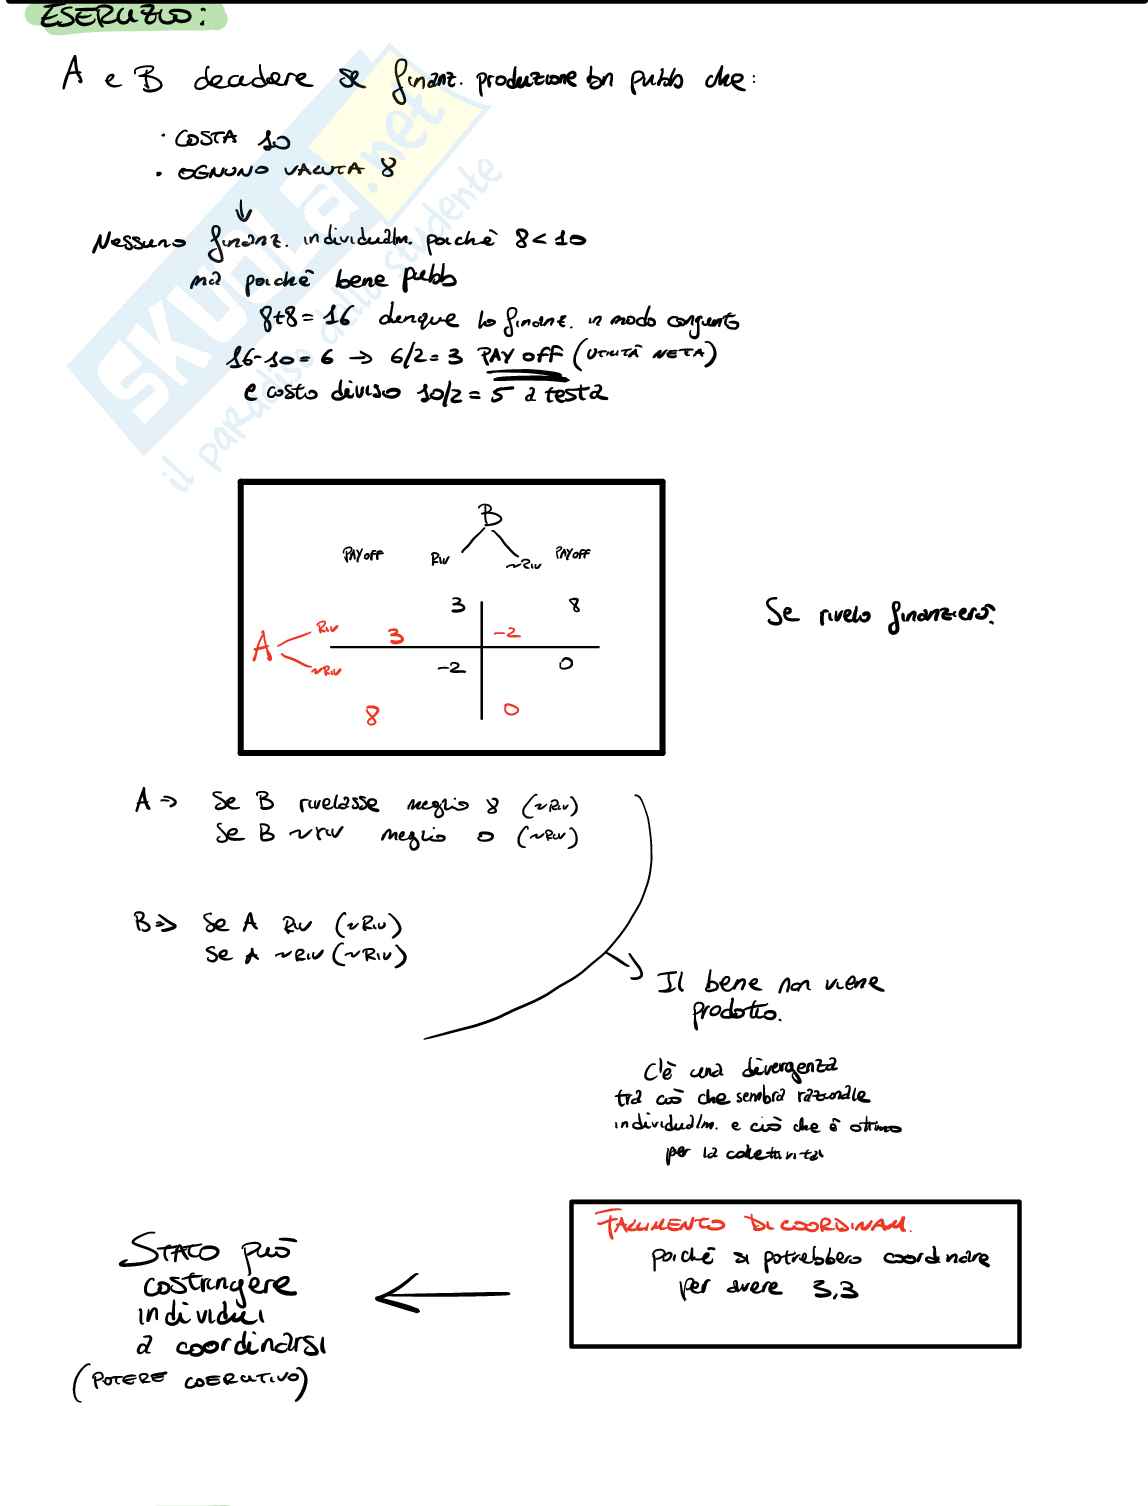 ESERCIZIO:
A e B decidere se finanz. produzione bn pubb che:
• COSTA 10
• OGNUNO VALUTA 8
↓
Nessuno finanz. individualm. poichè 8 < 10
ma poichè bene pubb
8+8=16 dunque lo finanz. in modo congiunto
16-10=6 → 6/2=3 PAY OFF (UTILITÀ NETA)
e costo diviso 10/2 = 5 a testa
B
PAY OFF RIV ~RIV PAY OFF
3 8
A RIV 3 -2
~RIV -2 0
8 0
Se rivelo finanzierò.
A ⇒ Se B rivelasse meglio 8 (~RIV)
Se B ~riv meglio 0 (~RIV)
B ⇒ Se A RIV (~RIV)
Se A ~RIV (~RIV)
Il bene non viene
prodotto.
C'è una divergenza
tra ciò che sembra razionale
individualm. e ciò che è ottimo
per la colettività
FALLIMENTO DI COORDINAM.
poichè si potrebbero coordinare
per avere 3,3
STATO può
costringere
individui
a coordinarsi
(POTERE COERCITIVO)
SKUOLA.net
il paradiso dello studente